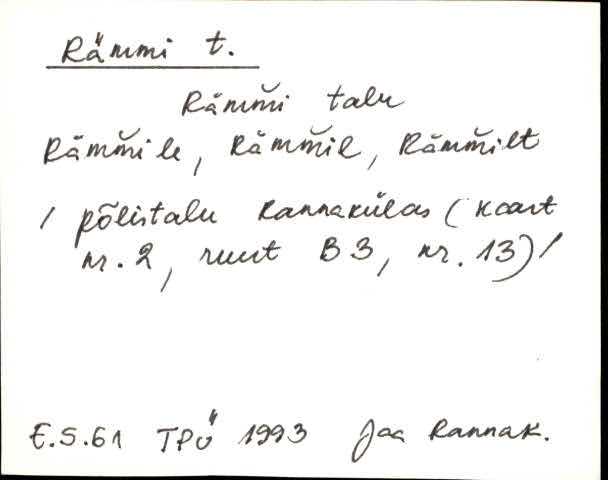 Rämmi t.
Rämm̆i talu
Rämm̆ile, Rämm̆il, Rämm̆ilt
/ põlistalu Rannakülas (kaart
nr. 2, ruut B3, nr. 13)/
E.S.61 TPÜ 1993 Jaa Rannak.